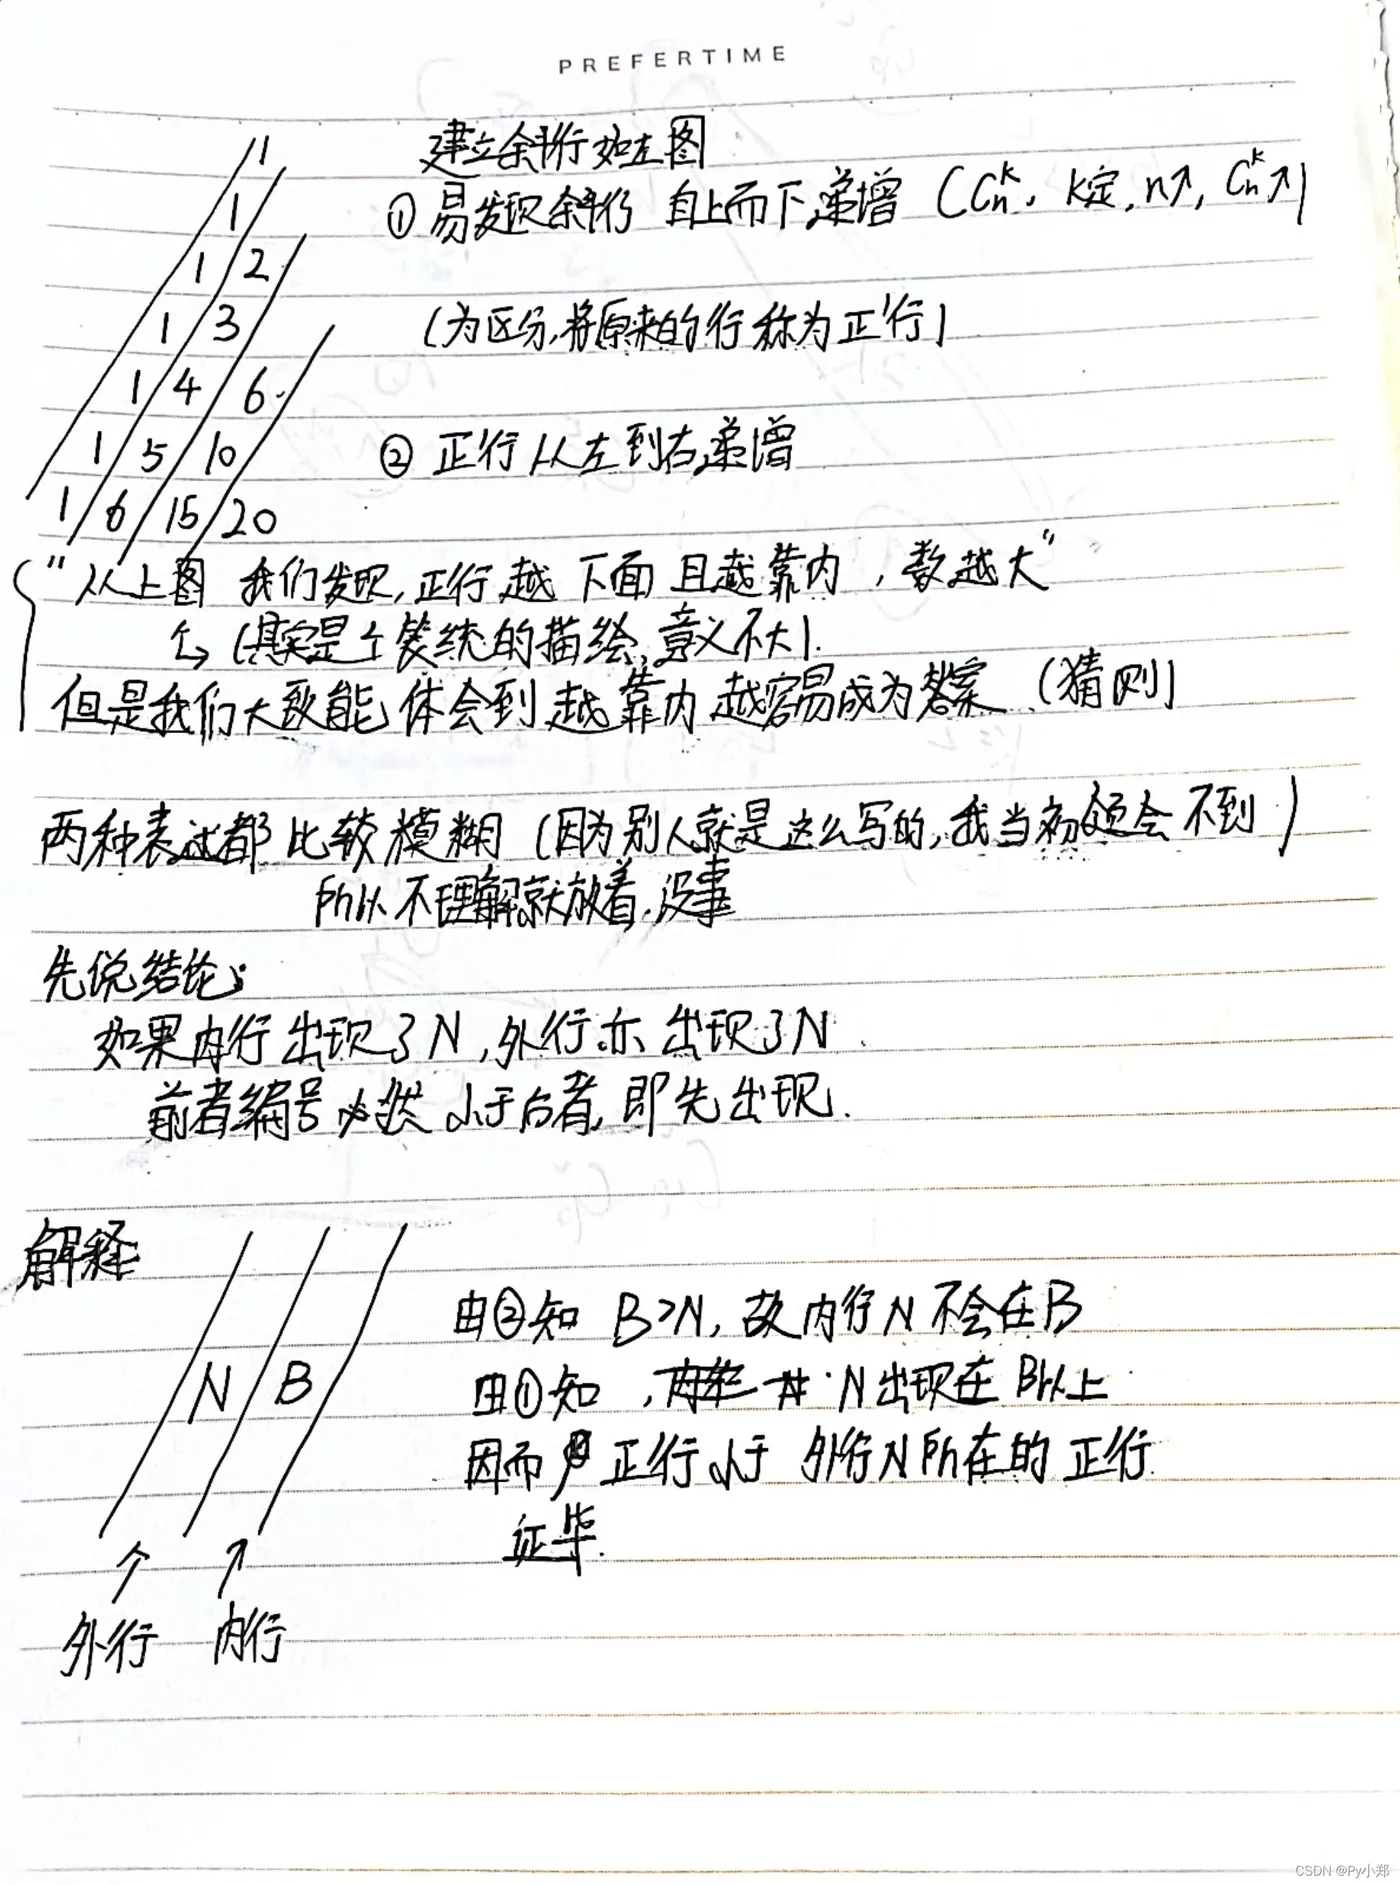 PREFERTIME
建立斜行如左图
① 易发现斜行 自上而下递增 (Cₙᵏ, k定, n↑, Cₙᵏ↑)
(为区分,将原来的行称为正行)
② 正行从左到右递增
1
1
1 2
1 3
1 4 6
1 5 10
1 6 15 20
"从上图 我们发现,正行越 下面 且越靠内 , 数越大"
↳ (其实是个笼统的描绘,意义不大).
但是我们大致能体会到越靠内越容易成为答案 (猜测)
两种表述都比较模糊 (因为别人就是这么写的,我当初领会不到)
所以不理解就放着,没事
先说结论:
如果内行出现了N,外行亦出现了N.
前者编号必然小于后者,即先出现.
解释
N B
外行 内行
由②知 B>N, 故内行N不会在B
由①知, N出现在B以上
因而 正行小于 外行N所在的正行.
证毕.
CSDN @Py小郑